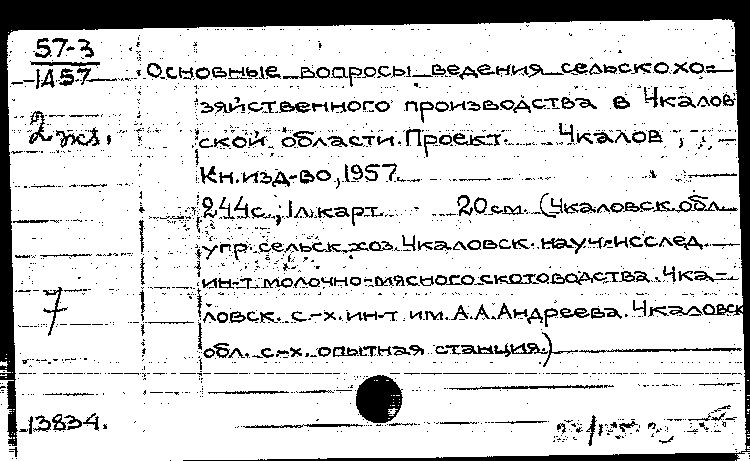 57-3
1457
2 экз.
7
13834.
Основные вопросы ведения сельскохо=
зяйственного производства в Чкалов
ской области. Проект. Чкалов,
Кн.изд-во, 1957.
244с.; 1л.карт. 20см. (Чкаловск.обл.
упр.сельск.хоз. Чкаловск.науч-исслед.
ин-т молочно-мясного скотоводства. Чка-
ловск. с.-х. ин-т им. А.А.Андреева. Чкаловск
обл. с.-х. опытная станция.)